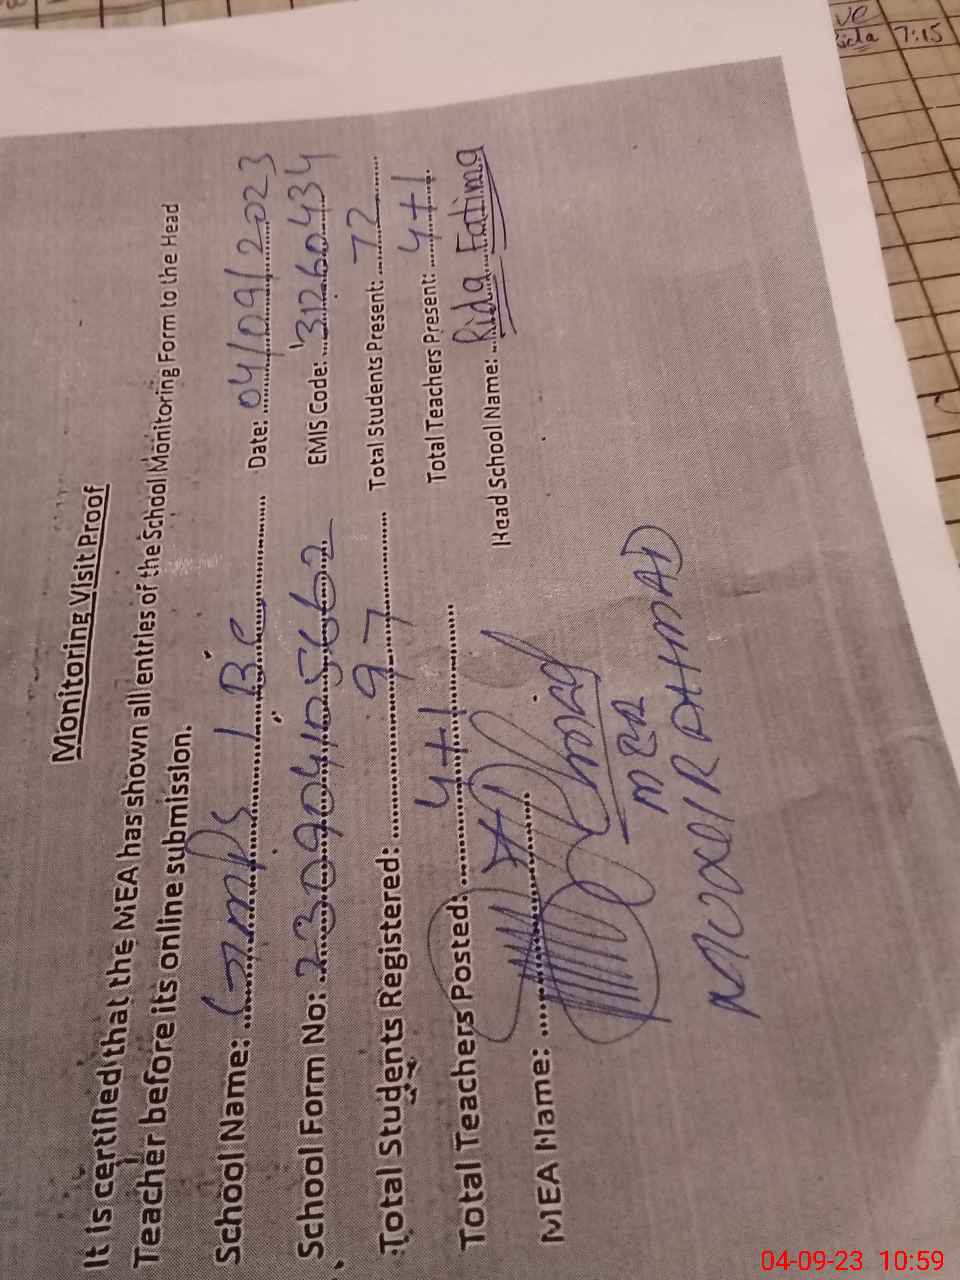 Monitoring Visit Proof
It is certified that the MEA has shown all entries of the School Monitoring Form to the Head
Teacher before its online submission.
School Name: GMPS 1 BC Date: 04/09/2023
School Form No: 230904105662 EMIS Code: 31260434
Total Students Registered: 97 Total Students Present: 72
Total Teachers Posted: 4+1 Total Teachers Present: 4+1
MEA Name: Head School Name: Rida Fatima
MUNIR AHMAD
7:15
04-09-23 10:59